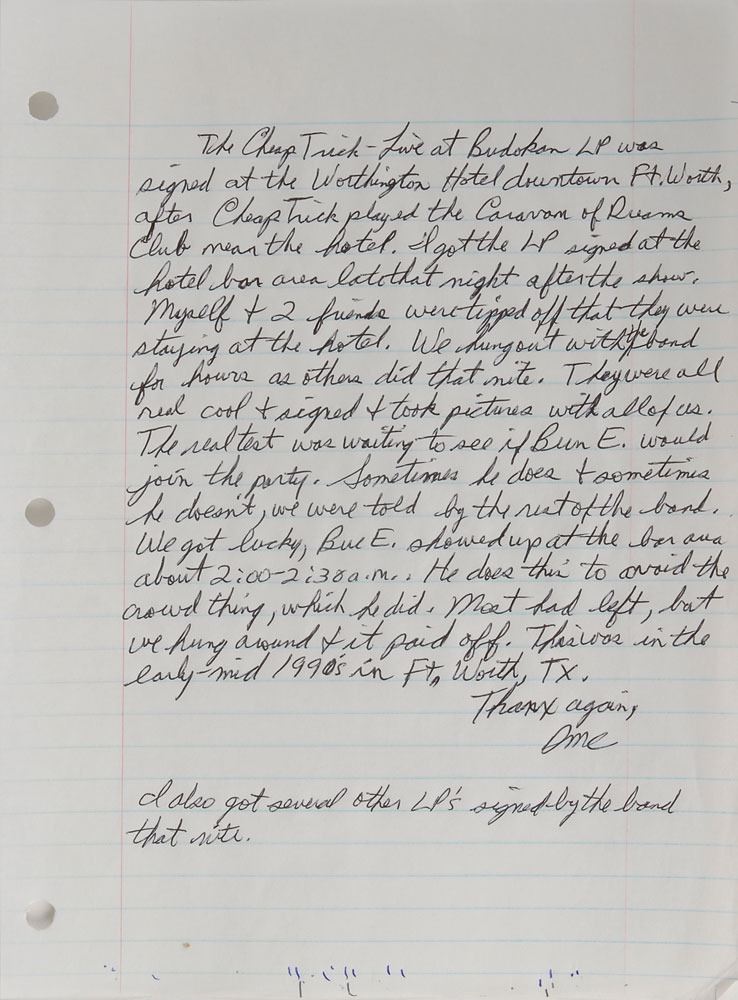 The Cheap Trick - Live at Budokan LP was
signed at the Worthington Hotel downtown Ft. Worth,
after Cheap Trick played the Caravan of Dreams
Club near the hotel. I got the LP signed at the
hotel bar area late that night after the show.
Myself + 2 friends were tipped off that they were
staying at the hotel. We hung out with the band
for hours as others did that nite. They were all
real cool + signed + took pictures with all of us.
The real test was waiting to see if Bun E. would
join the party. Sometimes he does + sometimes
he doesn't, we were told by the rest of the band.
We got lucky, Bun E. showed up at the bar area
about 2:00-2:30 a.m.. He does this to avoid the
crowd thing, which he did. Most had left, but
we hung around + it paid off. This was in the
early-mid 1990's in Ft. Worth, TX.
Thanx again,
I also got several other LP's signed by the band
that nite.